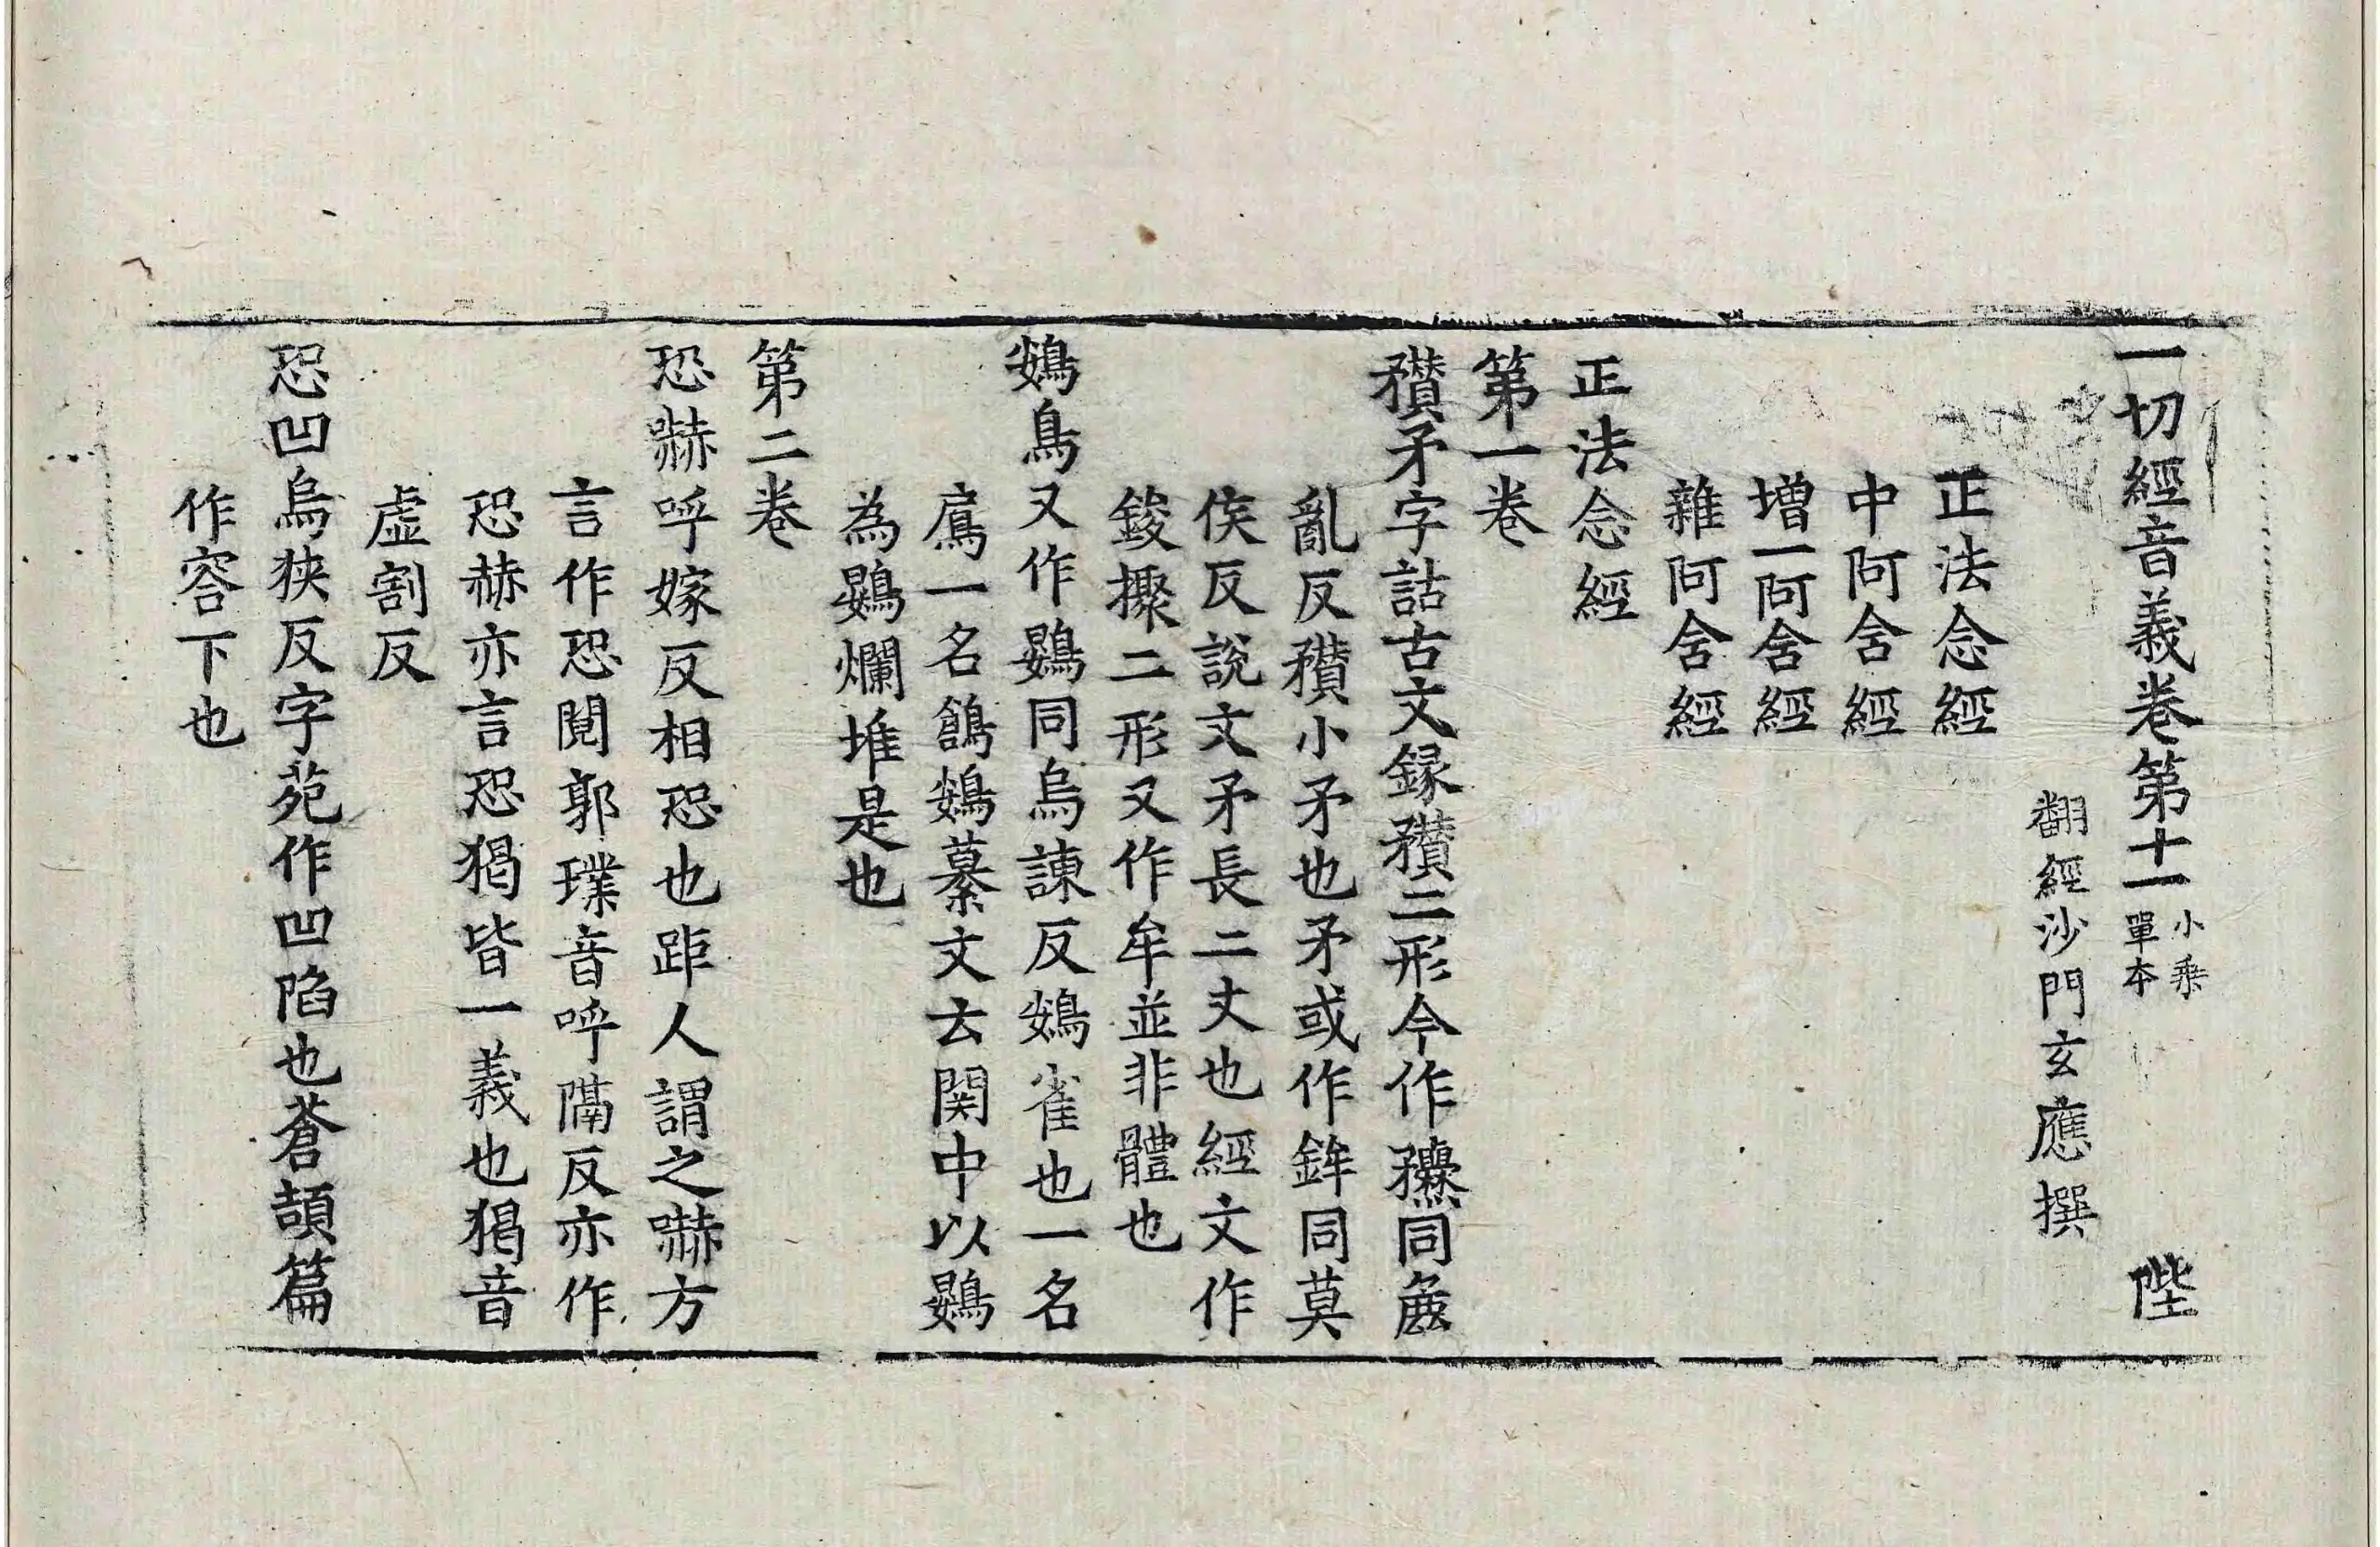 一切經音義卷第十一 小乗單本 陛
翻經沙門玄應撰
正法念經
中阿含經
增一阿含經
雜阿含經
正法念經
第一卷
矛字詁古文録二形今作同麁
亂反小矛也矛或作鉾同莫
侯反說文矛長二丈也經文作
鋑攥二形又作牟並非體也
鴳鳥又作鷃同烏諫反鴳雀也一名
鳸一名鴳纂文云関中以鷃
為鷃爛堆是也
第二卷
恐嚇呼嫁反相恐也距人謂之嚇方
言作恐鬩郭璞音呼隔反亦作
恐赫亦言恐猲皆一義也猲音
虛割反
恐凹烏狹反字苑作凹陷也蒼頡篇
作容下也